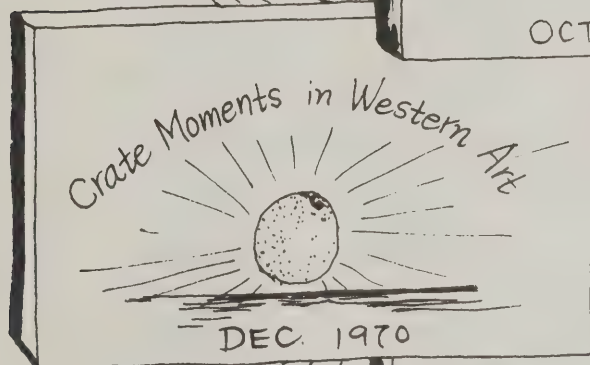 OCT
Crate Moments in Western Art
DEC. 1970